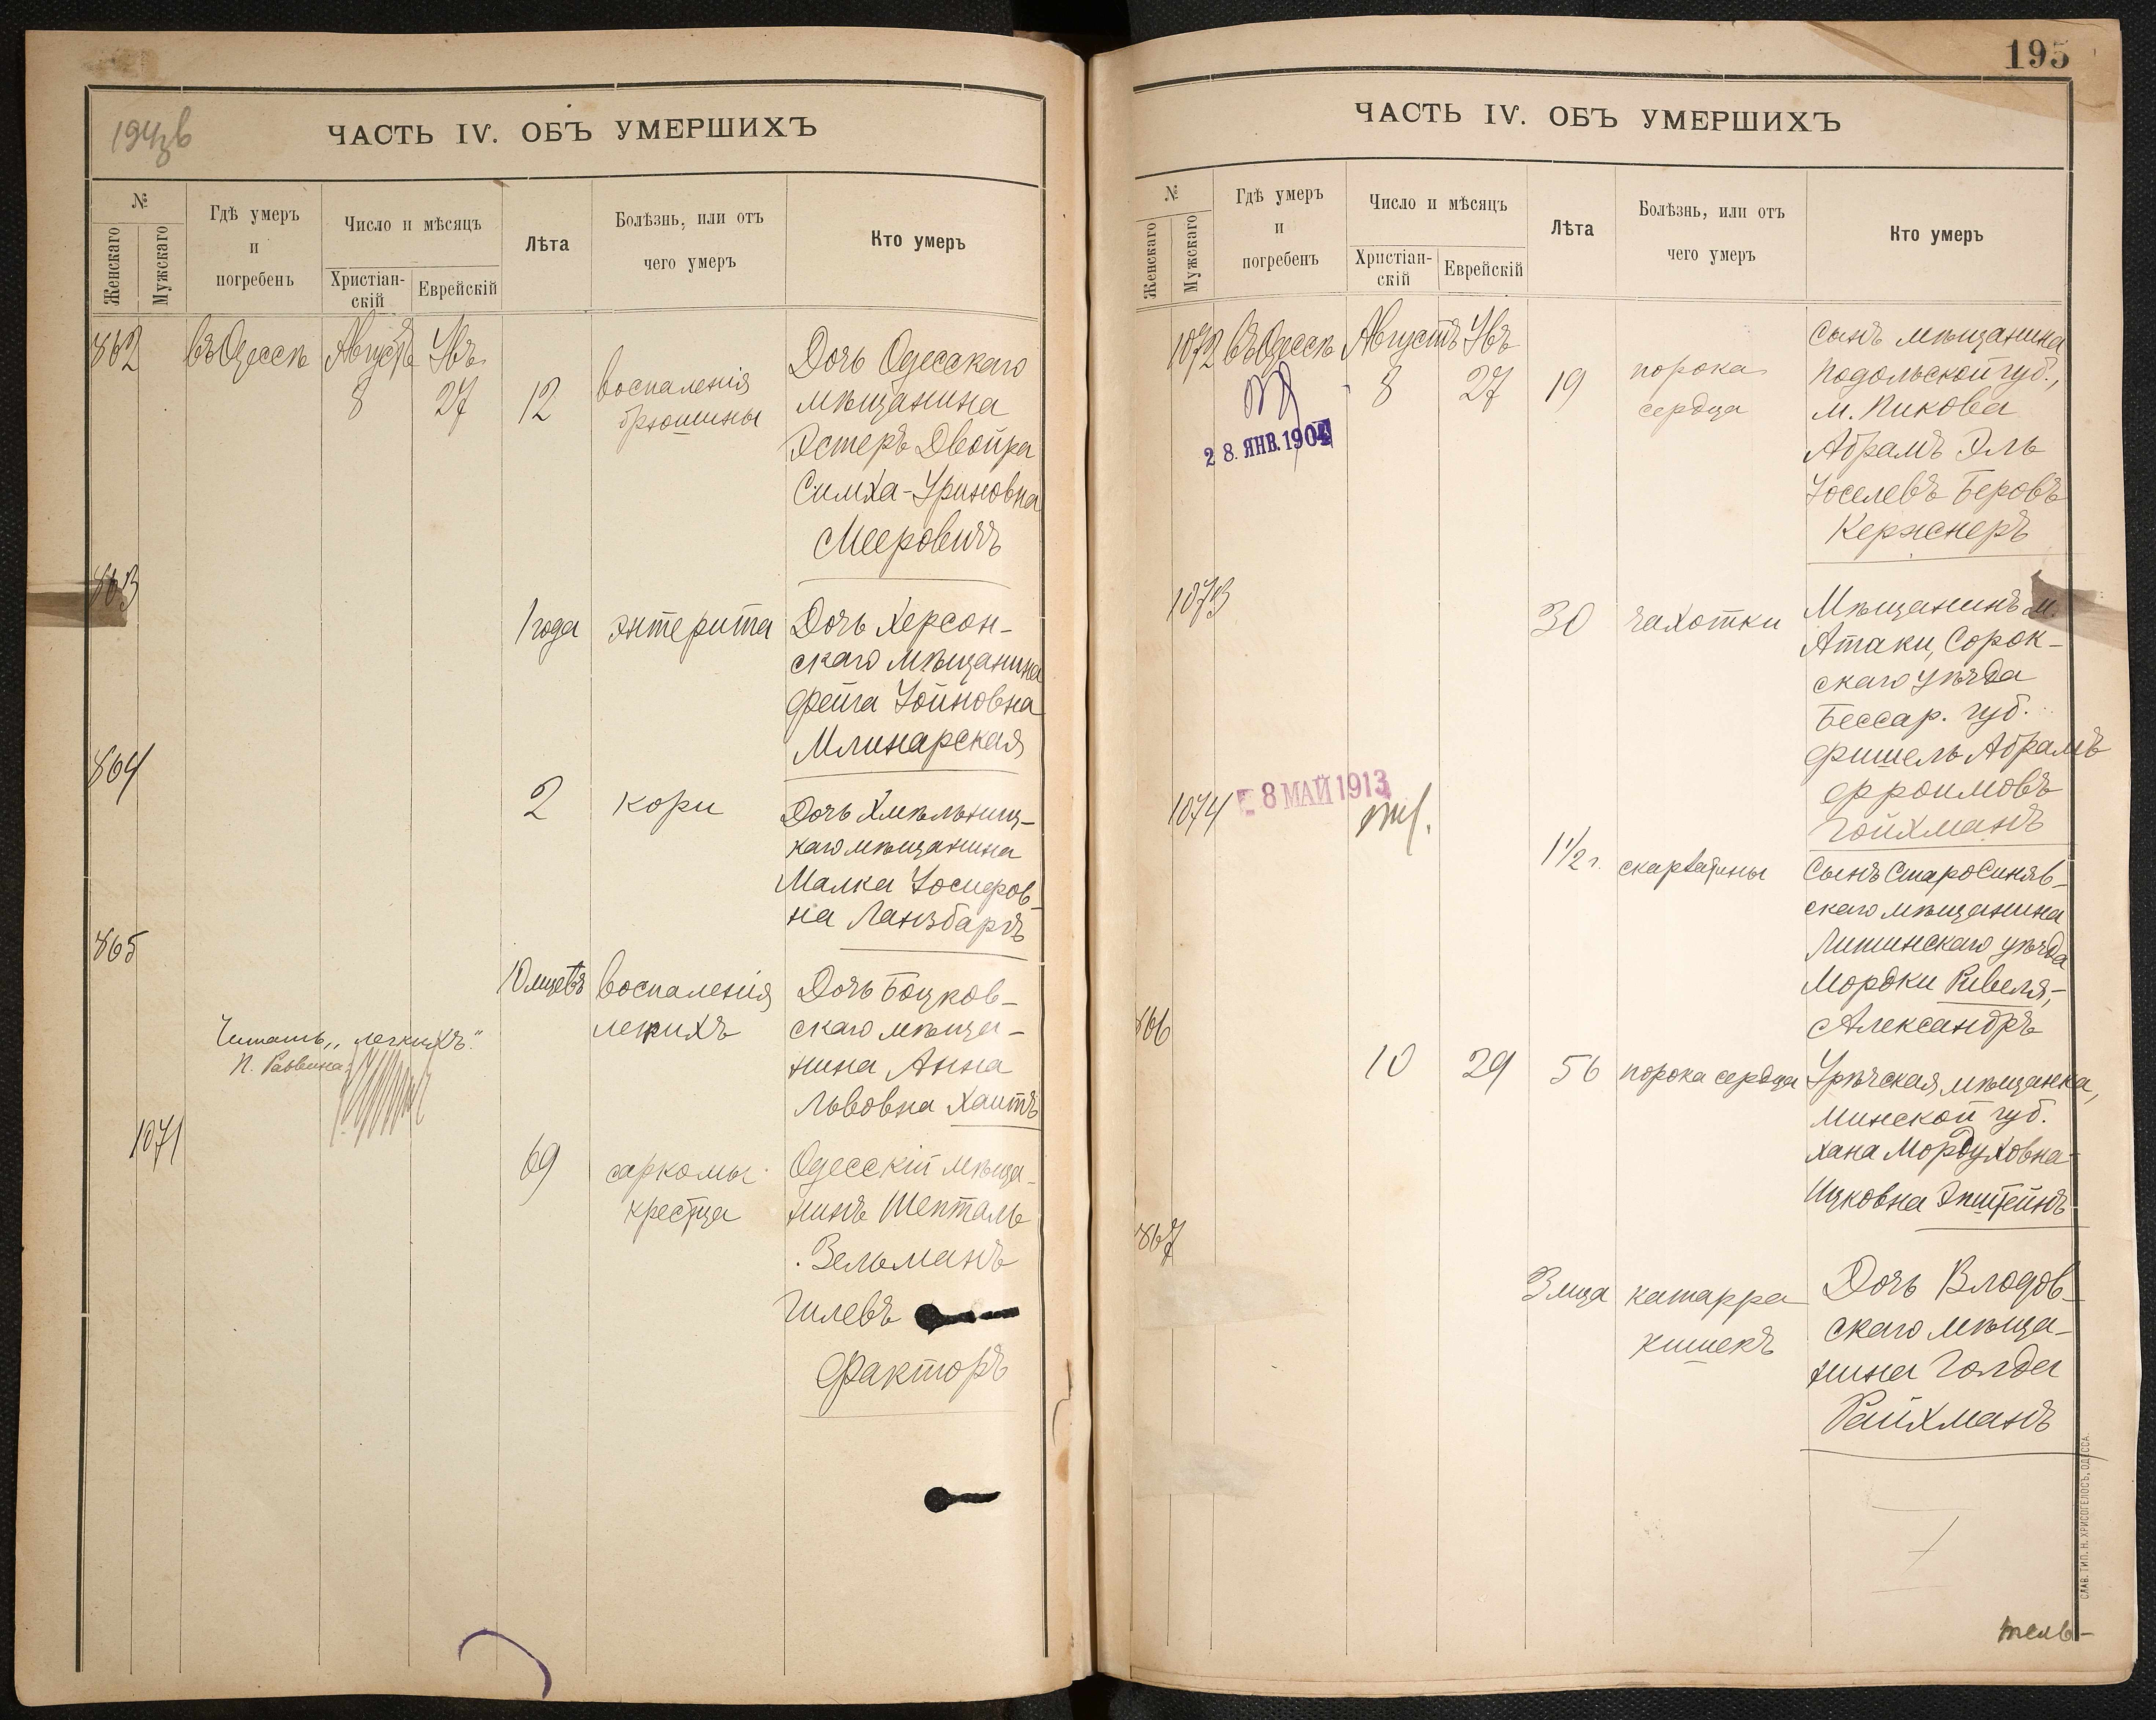 194зв
ЧАСТЬ IV. ОБЪ УМЕРШИХЪ
№
Женскаго
Мужскаго
Гдѣ умеръ
и
погребенъ
Число и мѣсяцъ
Христіан-
скій
Еврейскій
Лѣта
Болѣзнь, или отъ
чего умеръ
Кто умеръ
862 въ Одессѣ Августъ Увъ
8 27 12 воспаленія
брюшины
Дочь Одесскаго
мѣщанина
Эстеръ Двойра
Симха-Уриновна
Мееровичъ
863
1 года энтерита Дочь Херсон-
скаго мѣщанина
Фейга Іойновна
Млинарская
864
2 кори Дочь Хмѣльниц-
каго мѣщанина
Малка Іосифов-
на Ланзбаръ
865
10 мцевъ воспаленія
легкихъ
Дочь Боцков-
скаго мѣща-
нина Анна
Львовна Хаитъ
Читать „легкихъ."
П. Раввина
1071
69 саркомы
крестца
Одесскій мѣща-
нинъ Шепталь
Зельманъ
Гилевъ
Факторъ
195
ЧАСТЬ IV. ОБЪ УМЕРШИХЪ
№
Женскаго
Мужскаго
Гдѣ умеръ
и
погребенъ
Число и мѣсяцъ
Христіан-
скій
Еврейскій
Лѣта
Болѣзнь, или отъ
чего умеръ
Кто умеръ
1072 въ Одессѣ Августъ Увъ
8 27 19 порока
сердца
28. ЯНВ. 1904
Сынъ мѣщанина
Подольской губ.,
м. Пикова
Абрамъ Эль
Іоселевъ Беровъ
Кержнеръ
1073
30 чахотки Мѣщанинъ м.
Атаки, Сорок-
скаго уѣзда
Бессар. губ.
Фишель Абрамъ
Фроимовъ
Гойхманъ
1074 8 МАЙ 1913
1½ г. скарлатины Сынъ Старосиняв-
скаго мѣщанина
Литинскаго уѣзда
Мордки Ривеля,-
Александръ
866
10 29 56 порока сердца Урѣчская мѣщанка,
Минской губ.
Хана Мордуховна-
Ицковна Эпштейнъ
867
3 мца катарра
кишекъ
Дочь Влодов-
скаго мѣща-
нина Голда
Райхманъ
СЛАВ. ТИП. Н. ХРИСОГЕЛОСЪ, ОДЕССА.